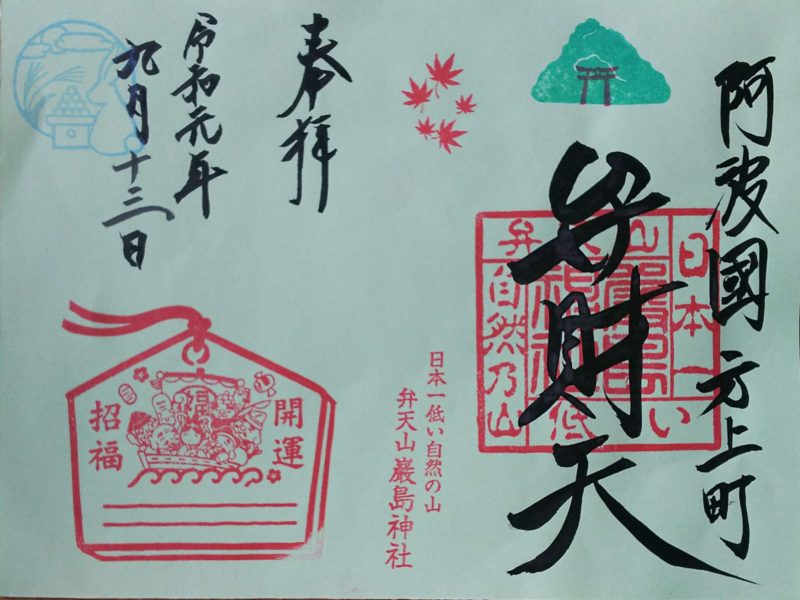 阿波國 方上町
弁財天
日本一
い
山
巖島
神社
低
弁
自然乃山
日本一低い自然の山
弁天山巖島神社
奉拝
令和元年
九月十三日
開運
福
招福